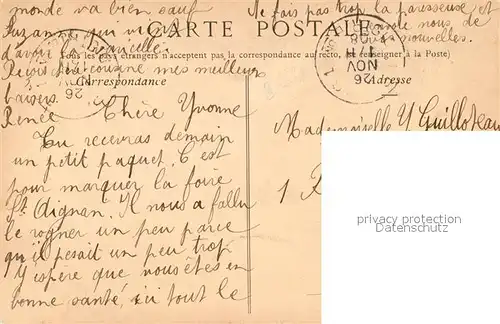 monde va bien sauf
Suzanne qui vient
d'avoir la
Reçois chère cousine mes meilleurs
baisers
Renée
Ne fais pas trop la paresseuse et
nous de
nouvelles.
CARTE POSTALE
Tous les pays étrangers n'acceptent pas la correspondance au recto, se renseigner à la Poste)
Correspondance
Adresse
NOV
26
26
Chère Yvonne
Tu recevras demain
un petit paquet. C'est
pour marquer la foire
St Aignan. Il nous a fallu
le rogner un peu parce
qu'il pesait un peu trop
J'espère que vous êtes en
bonne santé, ici tout le
Mademoiselle Y Guilloteau
1 R
privacy protection
Datenschutz